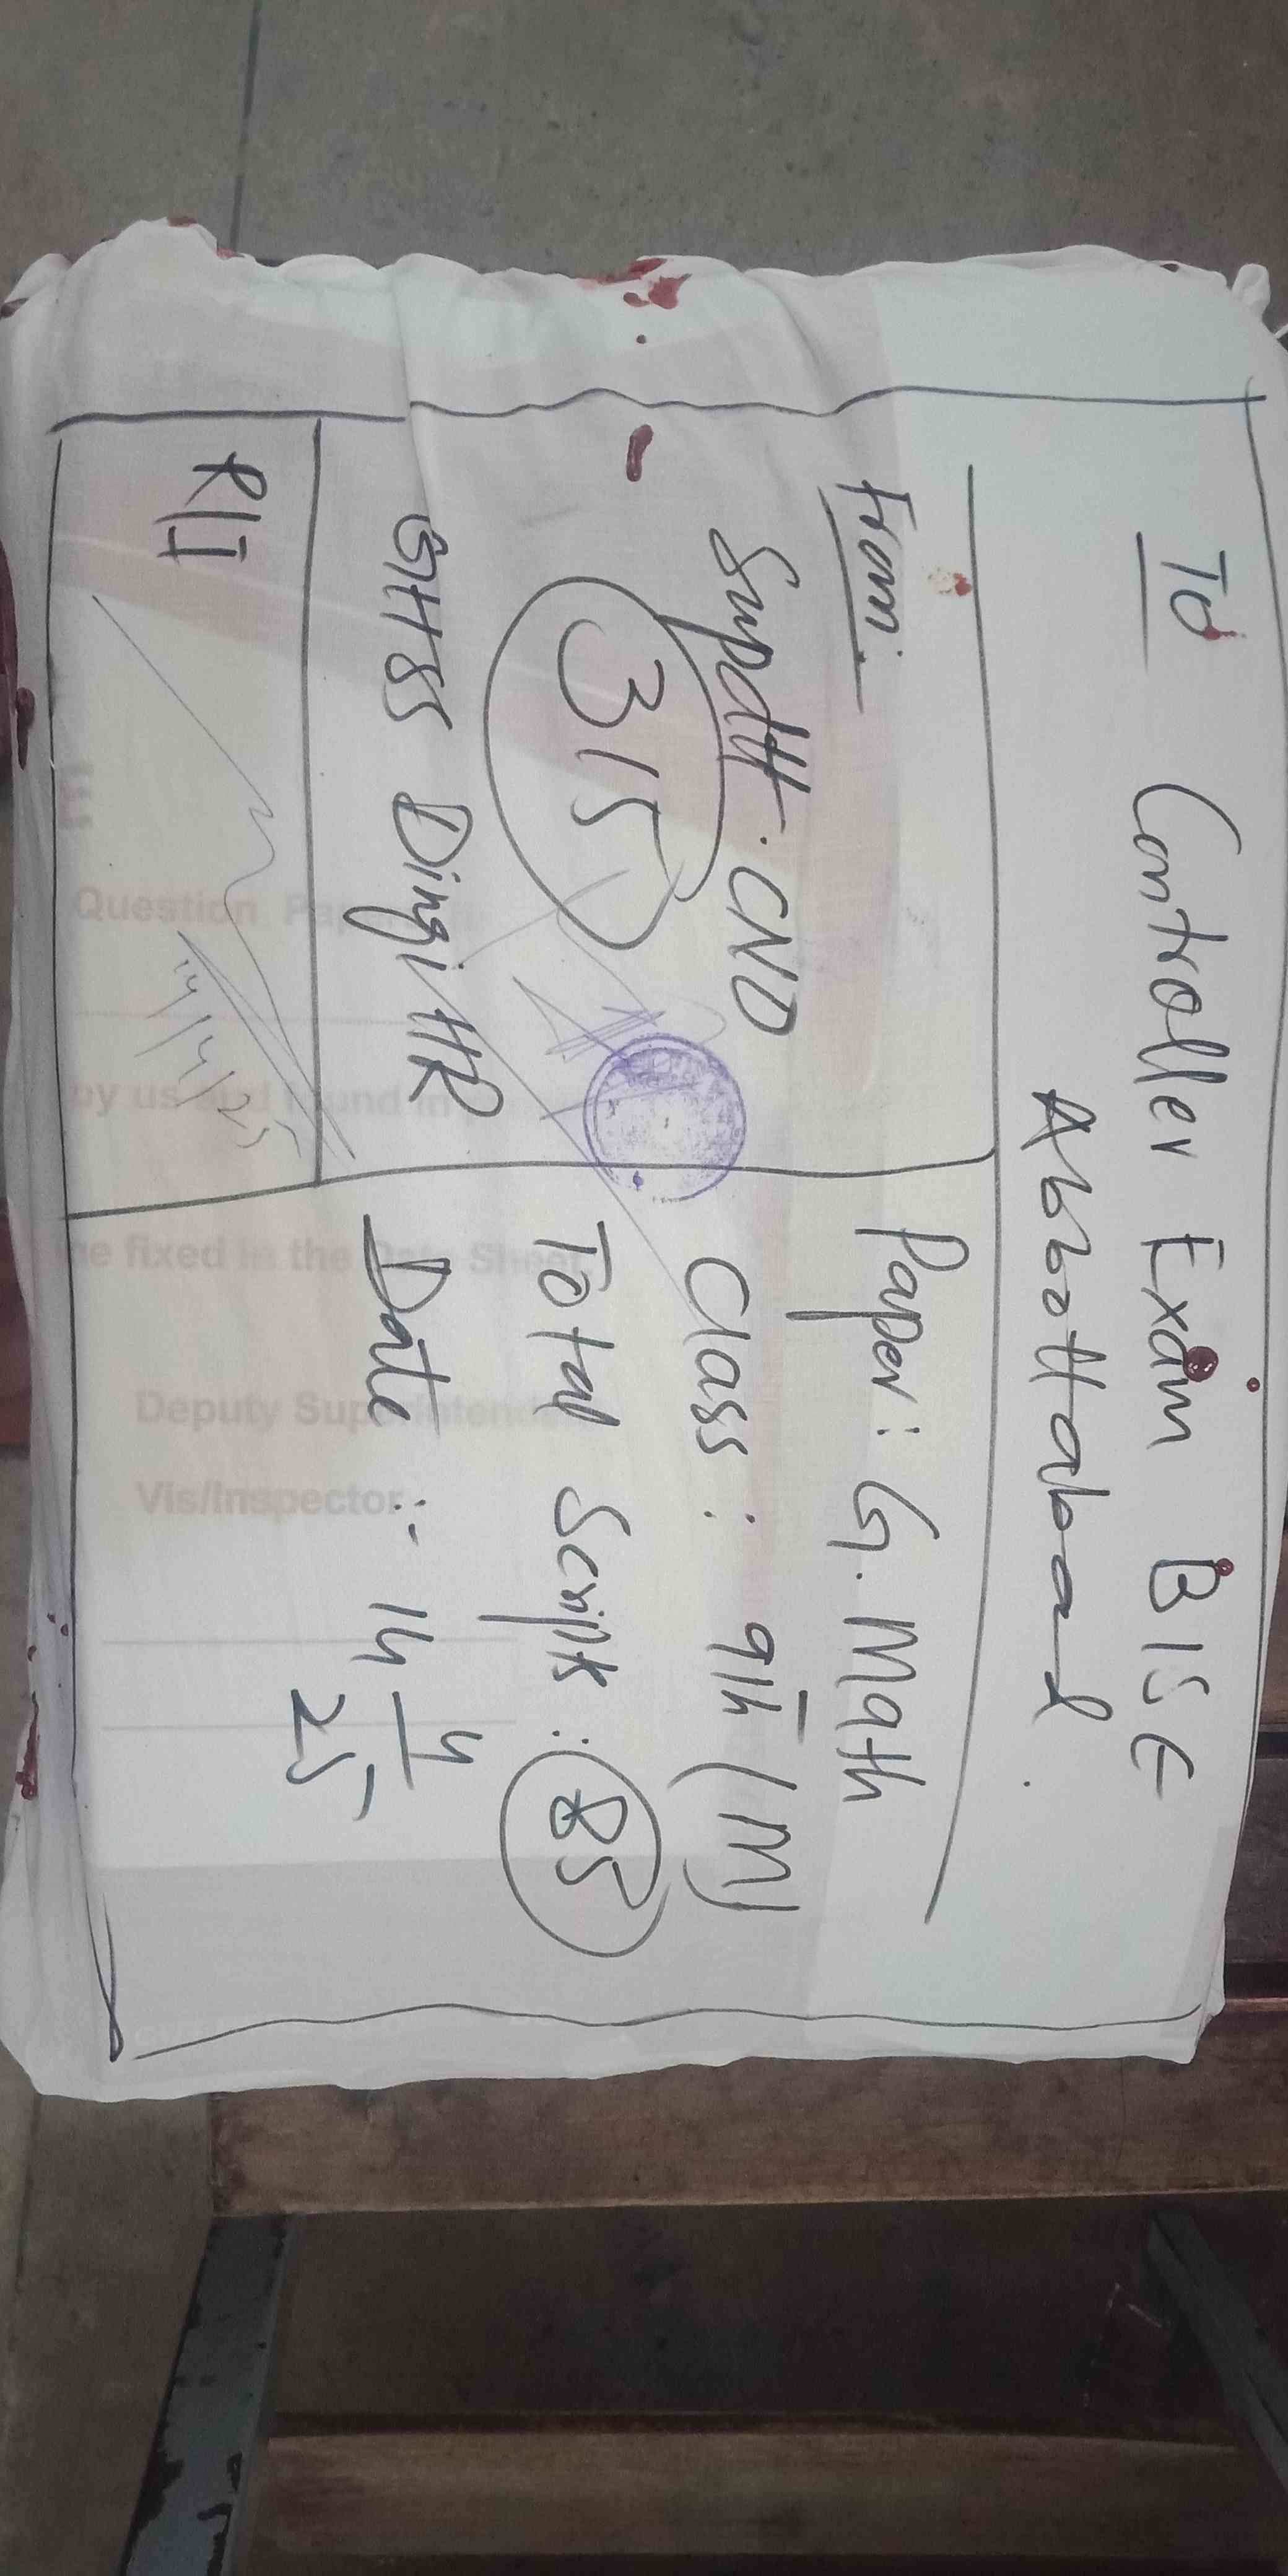 To Controller Exam BISE
Abbottabad.
From:
Supdtt. CNO
315
GHSS Dingi HR
R/I
14/4/25
Paper: G. Math
Class: 9th (M)
Total Scripts: 85
Date :- 14 4/25
Question
by us and found in
fixed in the Date Sheet.
Deputy Superintende
Vis/Inspector